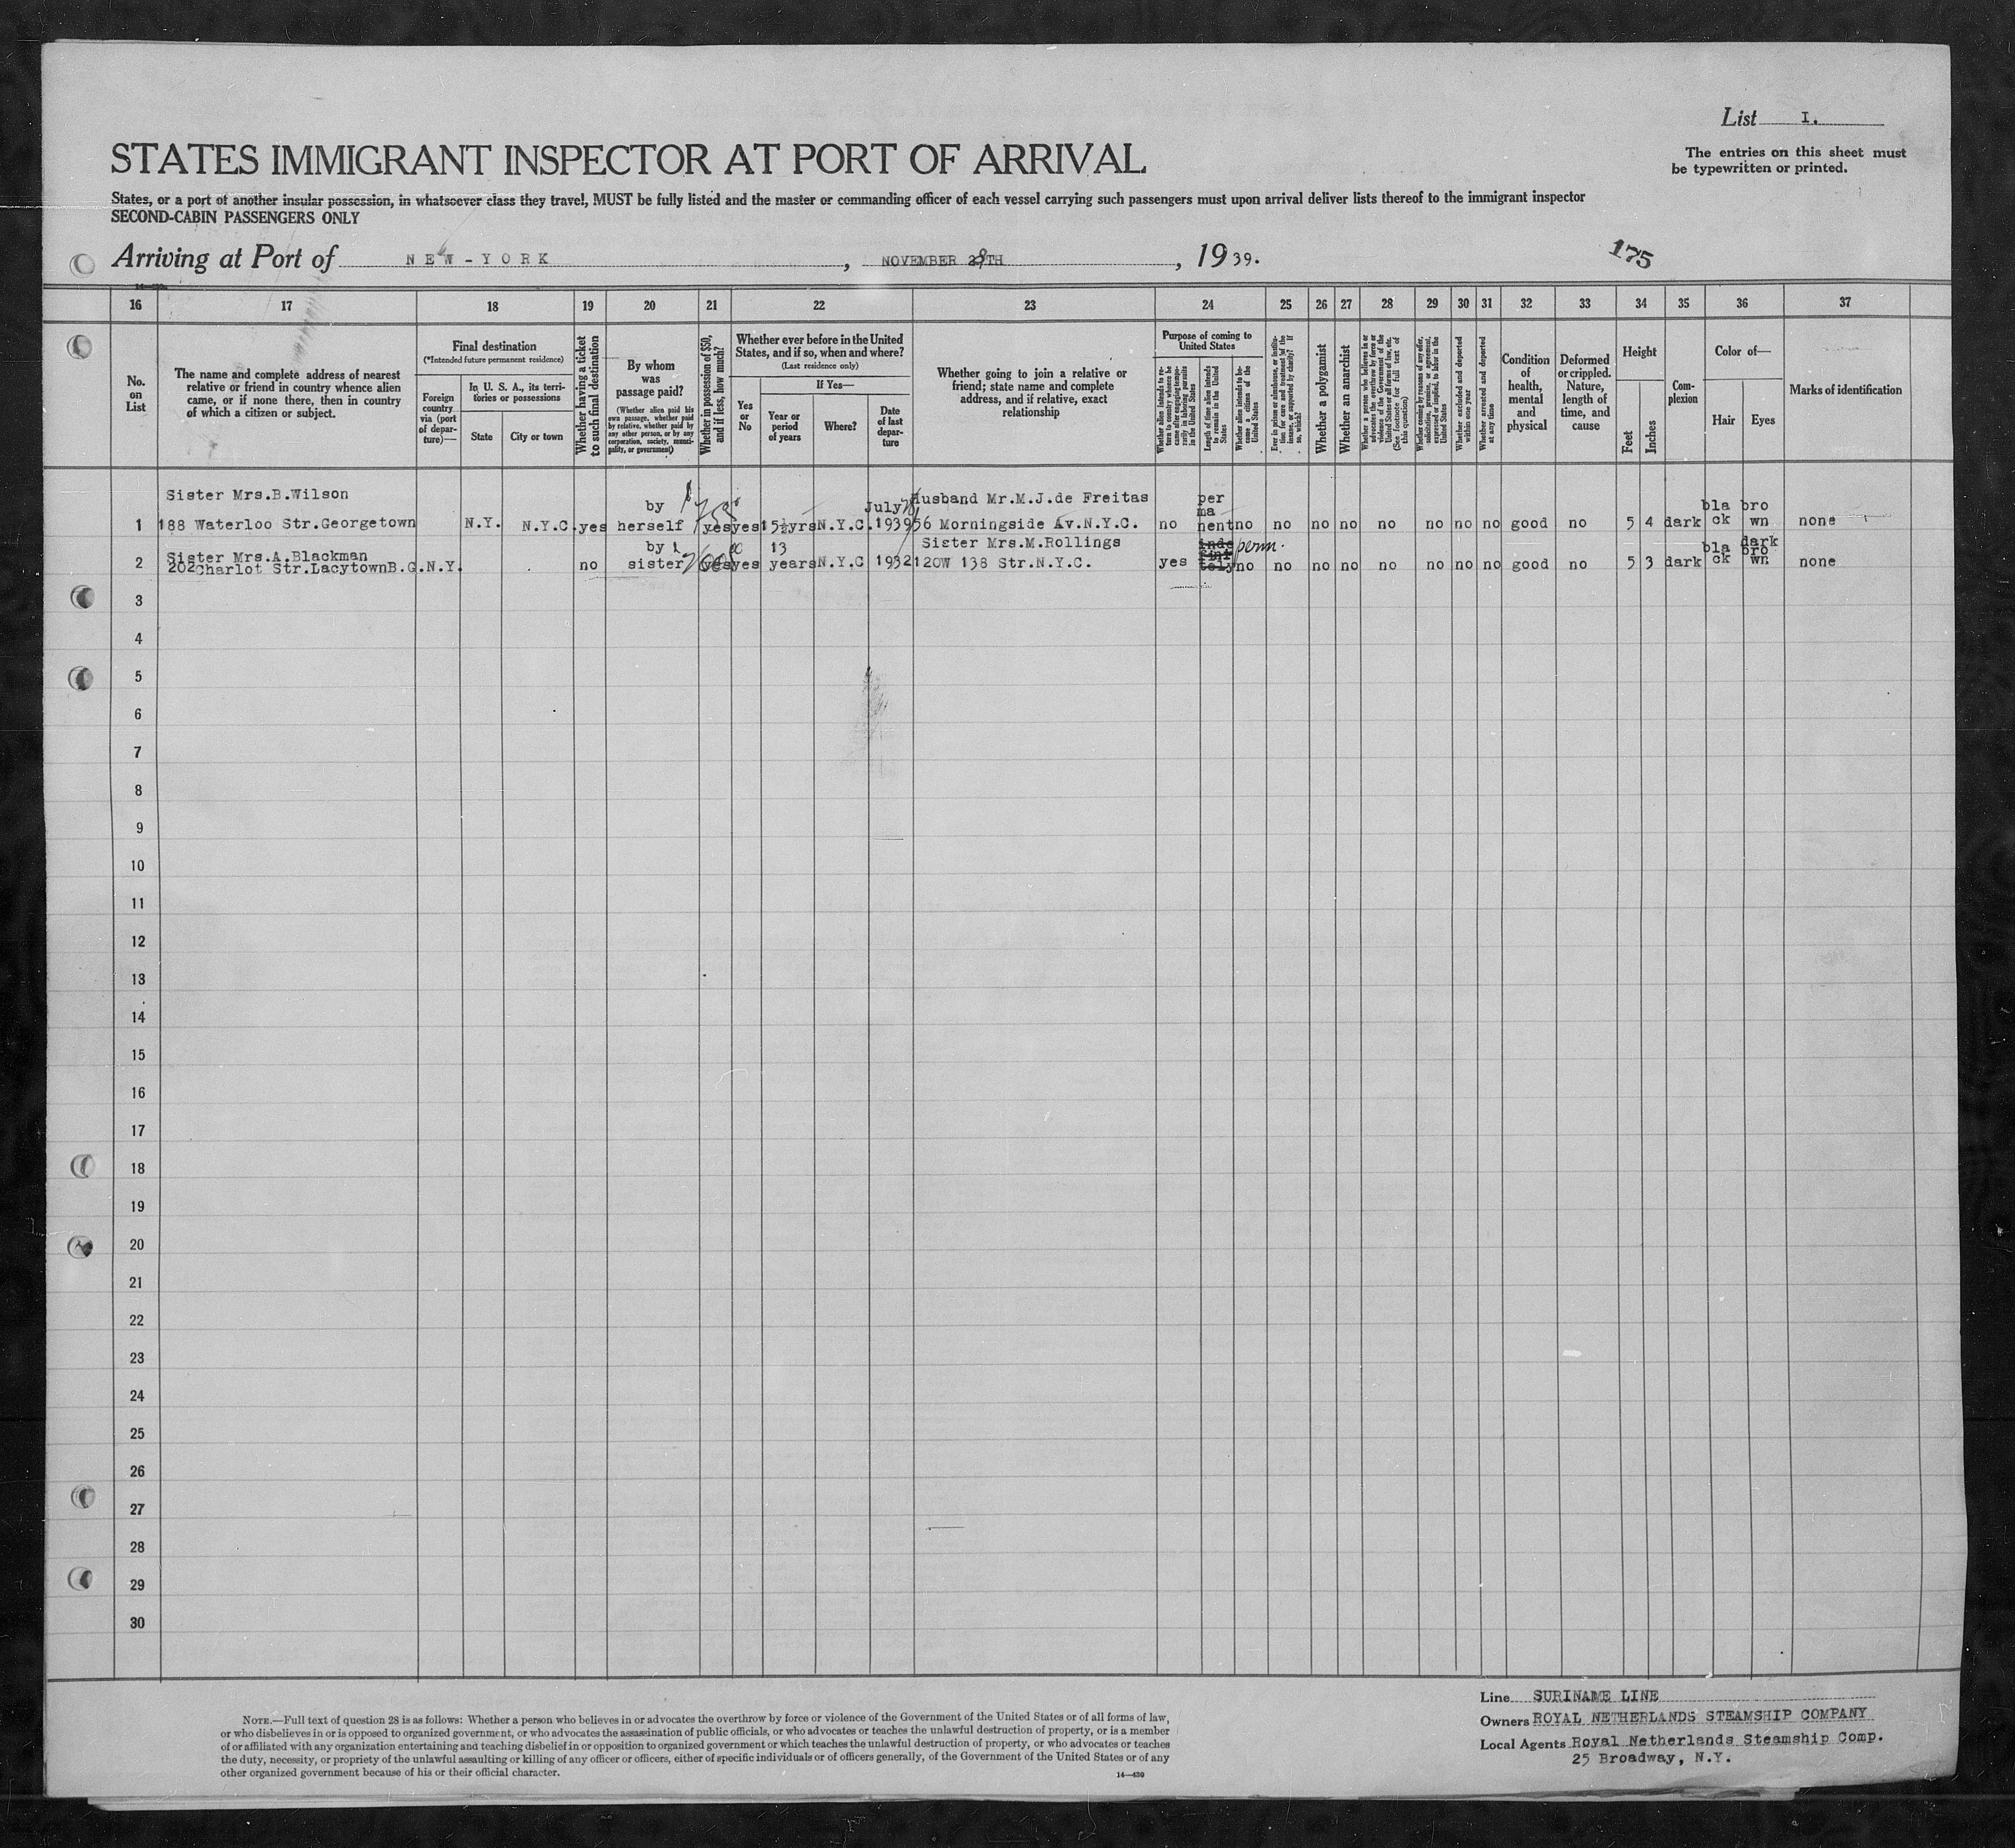 List I.
The entries on this sheet must
be typewritten or printed.
STATES IMMIGRANT INSPECTOR AT PORT OF ARRIVAL
States, or a port of another insular possession, in whatsoever class they travel, MUST be fully listed and the master or commanding officer of each vessel carrying such passengers must upon arrival deliver lists thereof to the immigrant inspector
SECOND-CABIN PASSENGERS ONLY
Arriving at Port of NEW-YORK, NOVEMBER 28TH, 1939.
175
16 17 18 19 20 21 22 23 24 25 26 27 28 29 30 31 32 33 34 35 36 37
No.
on
List
The name and complete address of nearest
relative or friend in country whence alien
came, or if none there, then in country
of which a citizen or subject.
Final destination
(*Intended future permanent residence)
Foreign
country
via (port
of depar-
ture)—
In U. S. A., its terri-
tories or possessions
State
City or town
Whether having a ticket
to such final destination
By whom
was
passage paid?
(Whether alien paid his
own passage, whether paid
by relative, whether paid by
any other person, or by any
corporation, society, munici-
pality, or government)
Whether in possession of $50,
and if less, how much?
Whether ever before in the United
States, and if so, when and where?
(Last residence only)
Yes
or
No
If Yes—
Year or
period
of years
Where?
Date
of last
depar-
ture
Whether going to join a relative or
friend; state name and complete
address, and if relative, exact
relationship
Purpose of coming to
United States
Whether alien intends to re-
turn to country whence he
came after engaging tempo-
rarily in laboring pursuits
in the United States
Length of time alien intends
to remain in the United
States
Whether alien intends to be-
come a citizen of the
United States
Ever in prison or almshouse, or institu-
tion for care and treatment of the
insane, or supported by charity? If
so, which?
Whether a polygamist
Whether an anarchist
Whether a person who believes in or
advocates the overthrow by force or
violence of the Government of the
United States or all forms of law, etc.
(See footnote for full text of
this question)
Whether coming by reasons of any offer,
solicitation, promise, or agreement,
expressed or implied, to labor in the
United States
Whether excluded and deported
within one year
Whether arrested and deported
at any time
Condition
of
health,
mental
and
physical
Deformed
or crippled.
Nature,
length of
time, and
cause
Height
Feet
Inches
Com-
plexion
Color of—
Hair
Eyes
Marks of identification
Sister Mrs.B.Wilson by July Husband Mr.M.J.de Freitas per ma bla bro
1 188 Waterloo Str.Georgetown N.Y. N.Y.C. yes herself yes yes 15½yrs N.Y.C. 1939 56 Morningside Av.N.Y.C. no nent no no no no no no no no good no 5 4 dark ck wn none
Sister Mrs.A.Blackman by 13 Sister Mrs.M.Rollings inde fini perm. bla dark bro
2 202Charlot Str.LacytownB.G. N.Y. no sister yes yes years N.Y.C 1932 120W 138 Str.N.Y.C. yes tely no no no no no no no no good no 5 3 dark ck wn none
3
4
5
6
7
8
9
10
11
12
13
14
15
16
17
18
19
20
21
22
23
24
25
26
27
28
29
30
NOTE.—Full text of question 28 is as follows: Whether a person who believes in or advocates the overthrow by force or violence of the Government of the United States or of all forms of law,
or who disbelieves in or is opposed to organized government, or who advocates the assassination of public officials, or who advocates or teaches the unlawful destruction of property, or is a member
of or affiliated with any organization entertaining and teaching disbelief in or opposition to organized government or which teaches the unlawful destruction of property, or who advocates or teaches
the duty, necessity, or propriety of the unlawful assaulting or killing of any officer or officers, either of specific individuals or of officers generally, of the Government of the United States or of any
other organized government because of his or their official character.
14—430
Line SURINAME LINE
Owners ROYAL NETHERLANDS STEAMSHIP COMPANY
Local Agents Royal Netherlands Steamship Comp.
25 Broadway, N.Y.